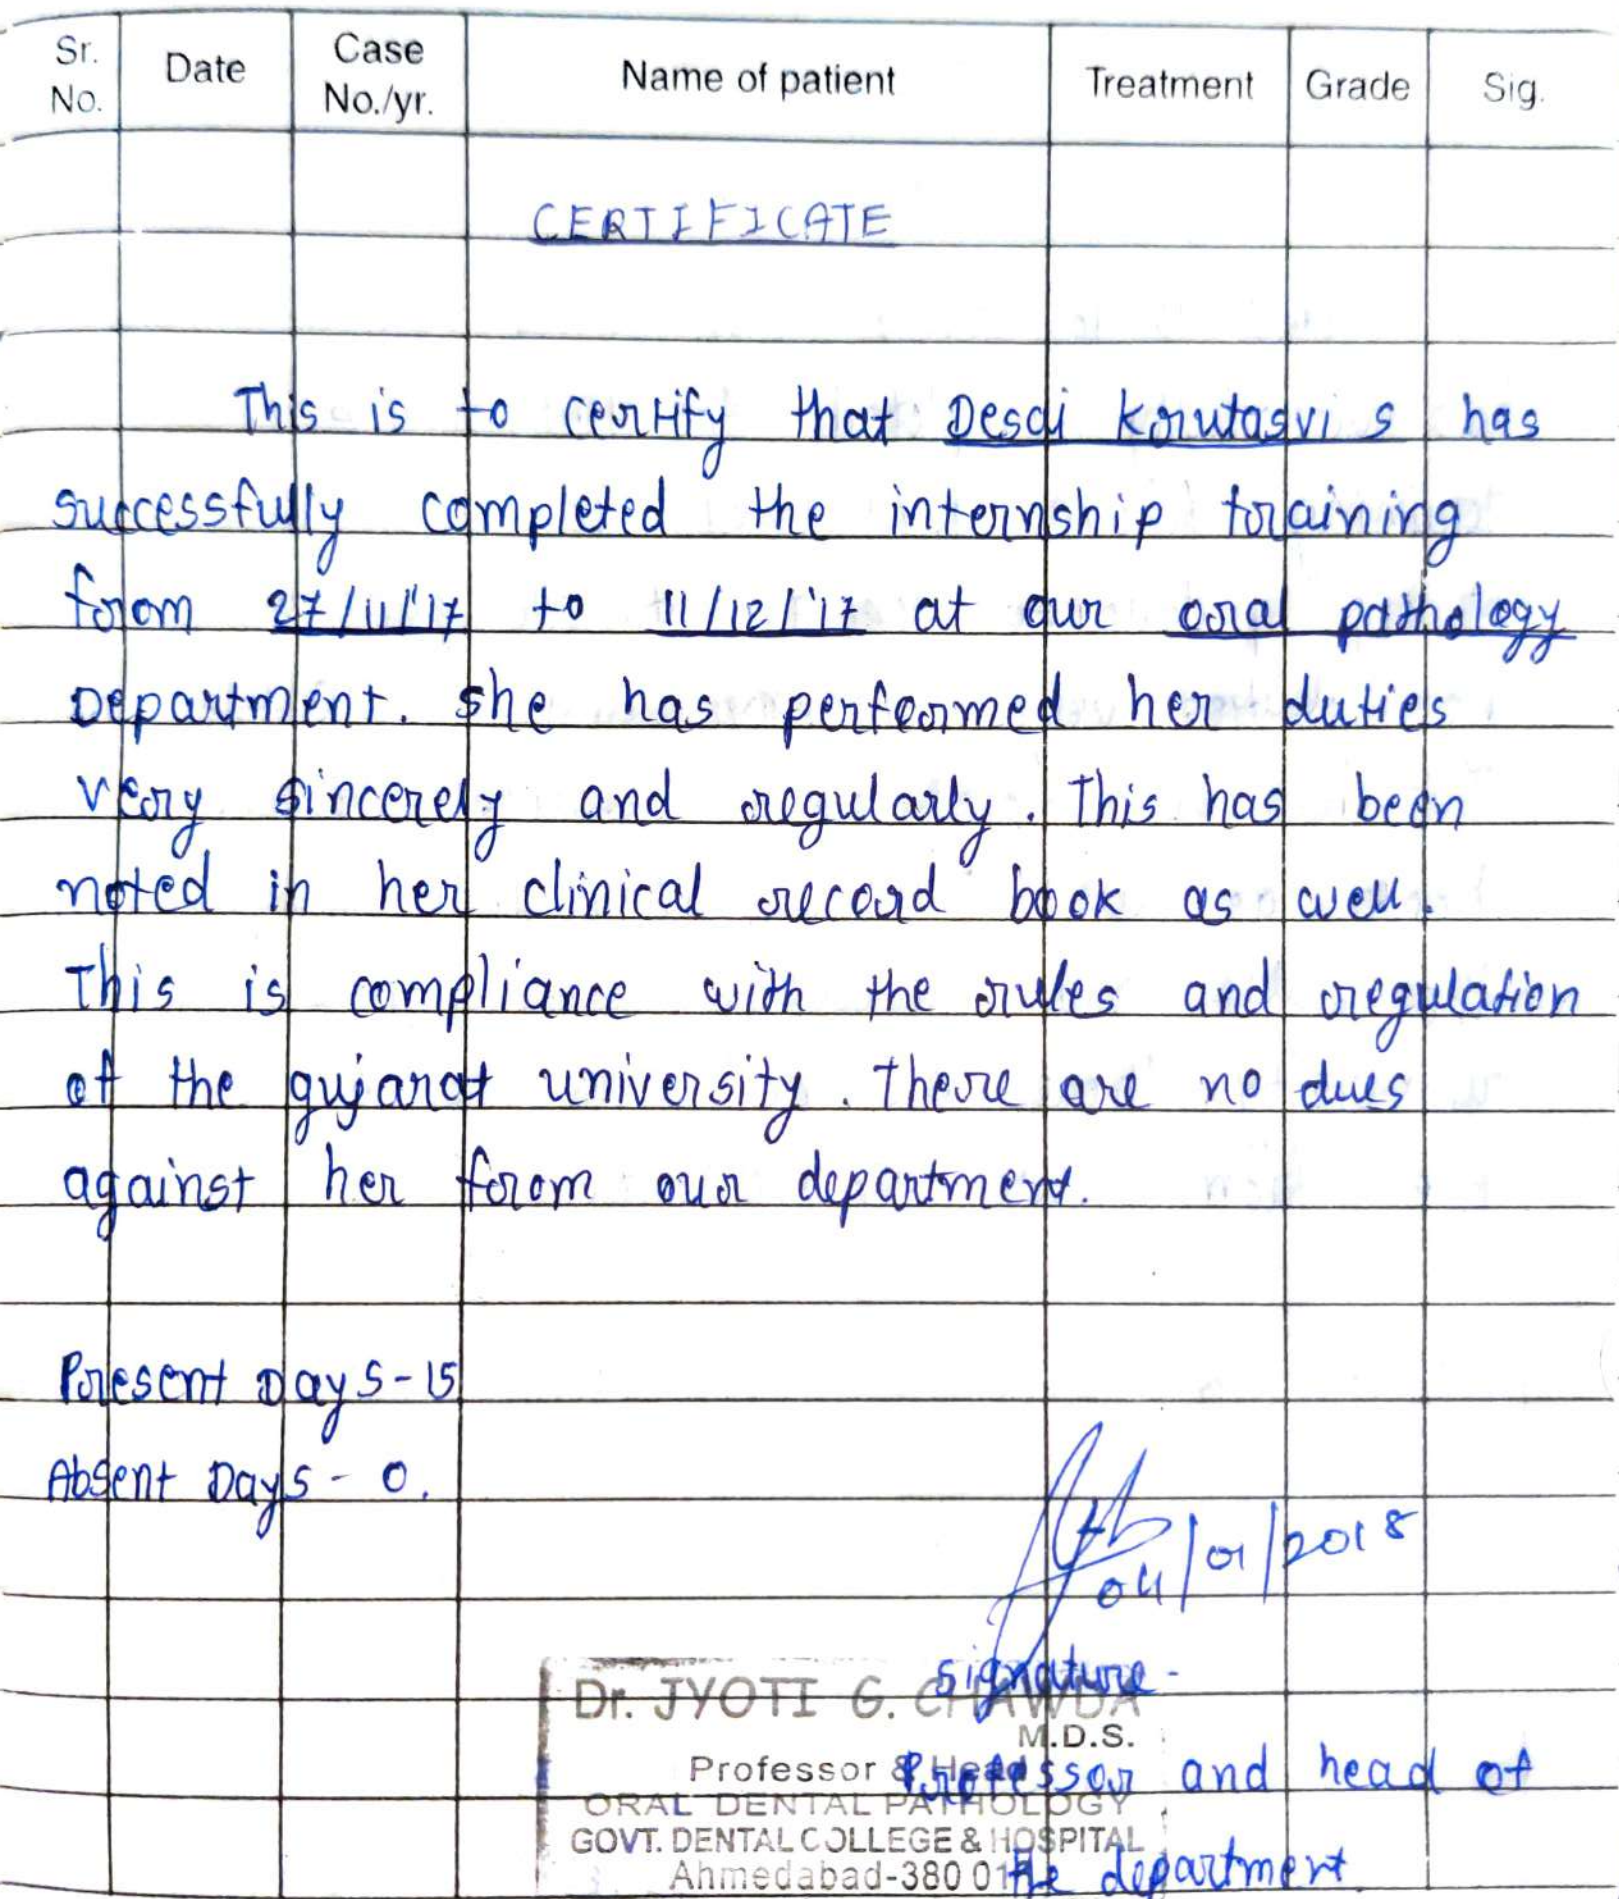 Sr. No. Date Case No./yr. Name of patient Treatment Grade Sig.
CERTIFICATE
This is to certify that Desai Krutasvi S has
successfully completed the internship training
from 27/11/'17 to 11/12/'17 at our oral pathology
Department. She has performed her duties
very sincerely and regularly. This has been
noted in her clinical record book as well.
This is compliance with the rules and regulation
of the gujarat university. There are no dues
against her from our department.
Present Days - 15
Absent Days - 0.
04/01/2018
Signature -
Dr. JYOTI G. CHAWDA
M.D.S.
Professor & Head
Professor and head of
ORAL DENTAL PATHOLOGY
GOVT. DENTAL COLLEGE & HOSPITAL
Ahmedabad-380 01
the department